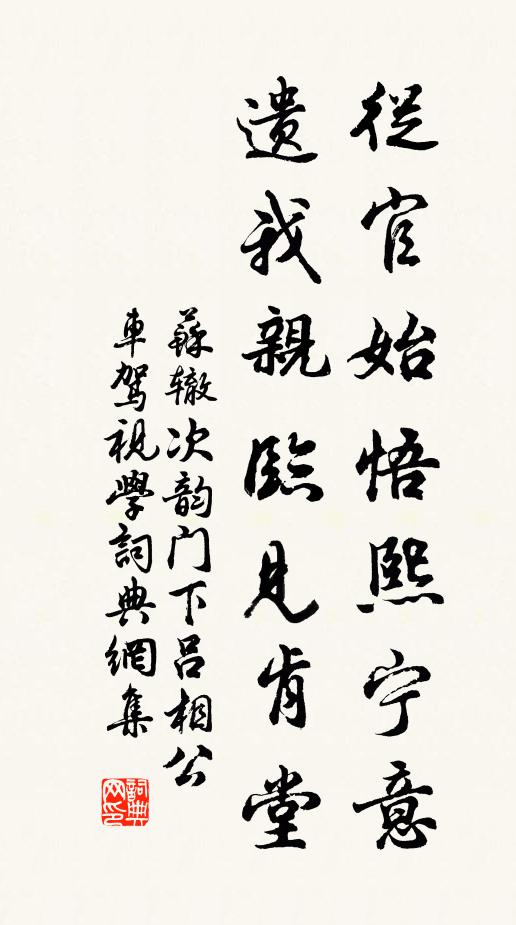 從官始悟熙宁意
遺我親臨見肯堂
蘇辙次韵门下吕相公
車駕視學詞典網集
詞典
网印